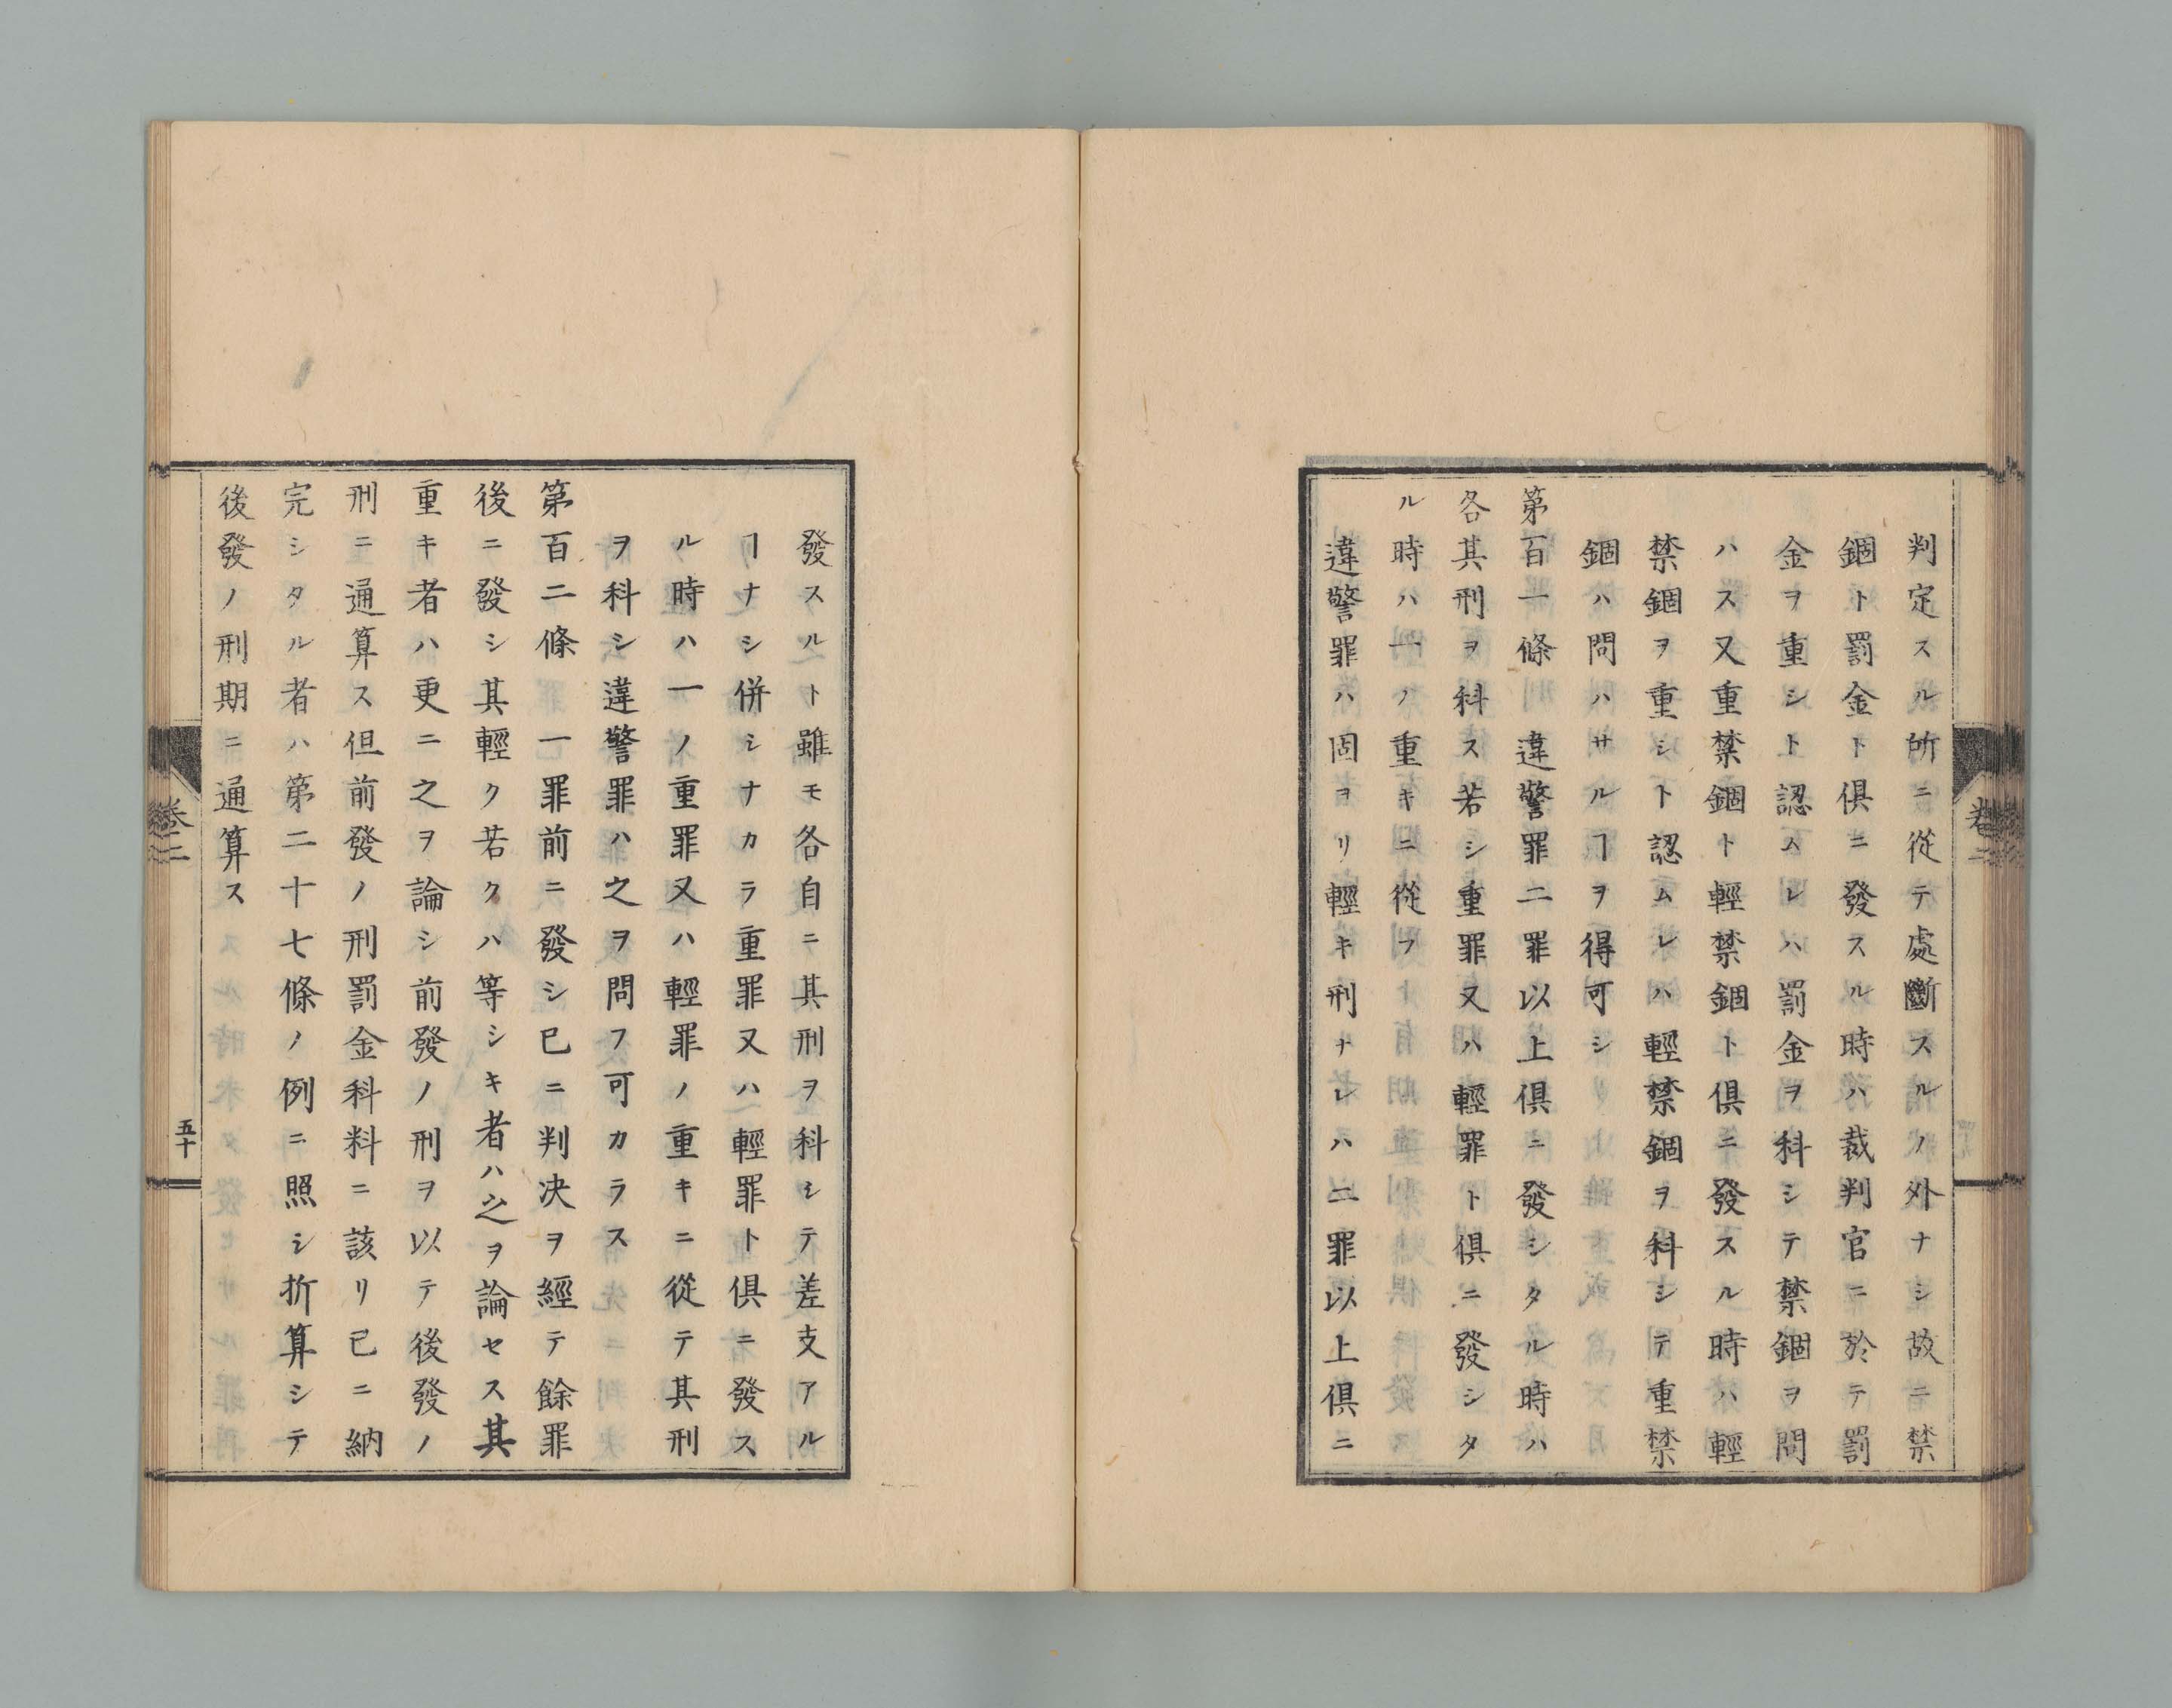 判定スル所ニ從テ處斷スルノ外ナシ故ニ禁
錮ト罰金ト俱ニ發スル時ハ裁判官ニ於テ罰
金ヲ重シト認ムレハ罰金ヲ科シテ禁錮ヲ問
ハス又重禁錮ト輕禁錮ト俱ニ發スル時ハ輕
禁錮ヲ重シト認ムレハ輕禁錮ヲ科シテ重禁
錮ハ問ハサルヿヲ得可シ
第百一條　違警罪二罪以上俱ニ發シタル時ハ
各其刑ヲ科ス若シ重罪又ハ輕罪ト俱ニ發シタ
ル時ハ一ノ重キニ從フ
違警罪ハ固ヨリ輕キ刑ナレハ二罪以上俱ニ
卷二
發スルト雖モ各自ニ其刑ヲ科シテ差支アル
ヿナシ併シナカラ重罪又ハ輕罪ト俱ニ發ス
ル時ハ一ノ重罪又ハ輕罪ノ重キニ從テ其刑
ヲ科シ違警罪ハ之ヲ問フ可カラス
第百二條一罪前ニ發シ已ニ判决ヲ經テ餘罪
後ニ發シ其輕ク若クハ等シキ者ハ之ヲ論セス其
重キ者ハ更ニ之ヲ論シ前發ノ刑ヲ以テ後發ノ
刑ニ通算ス但前發ノ刑罰金科料ニ該リ已ニ納
完シタル者ハ第二十七條ノ例ニ照シ折算シテ
後發ノ刑期ニ通算ス
卷二
五十